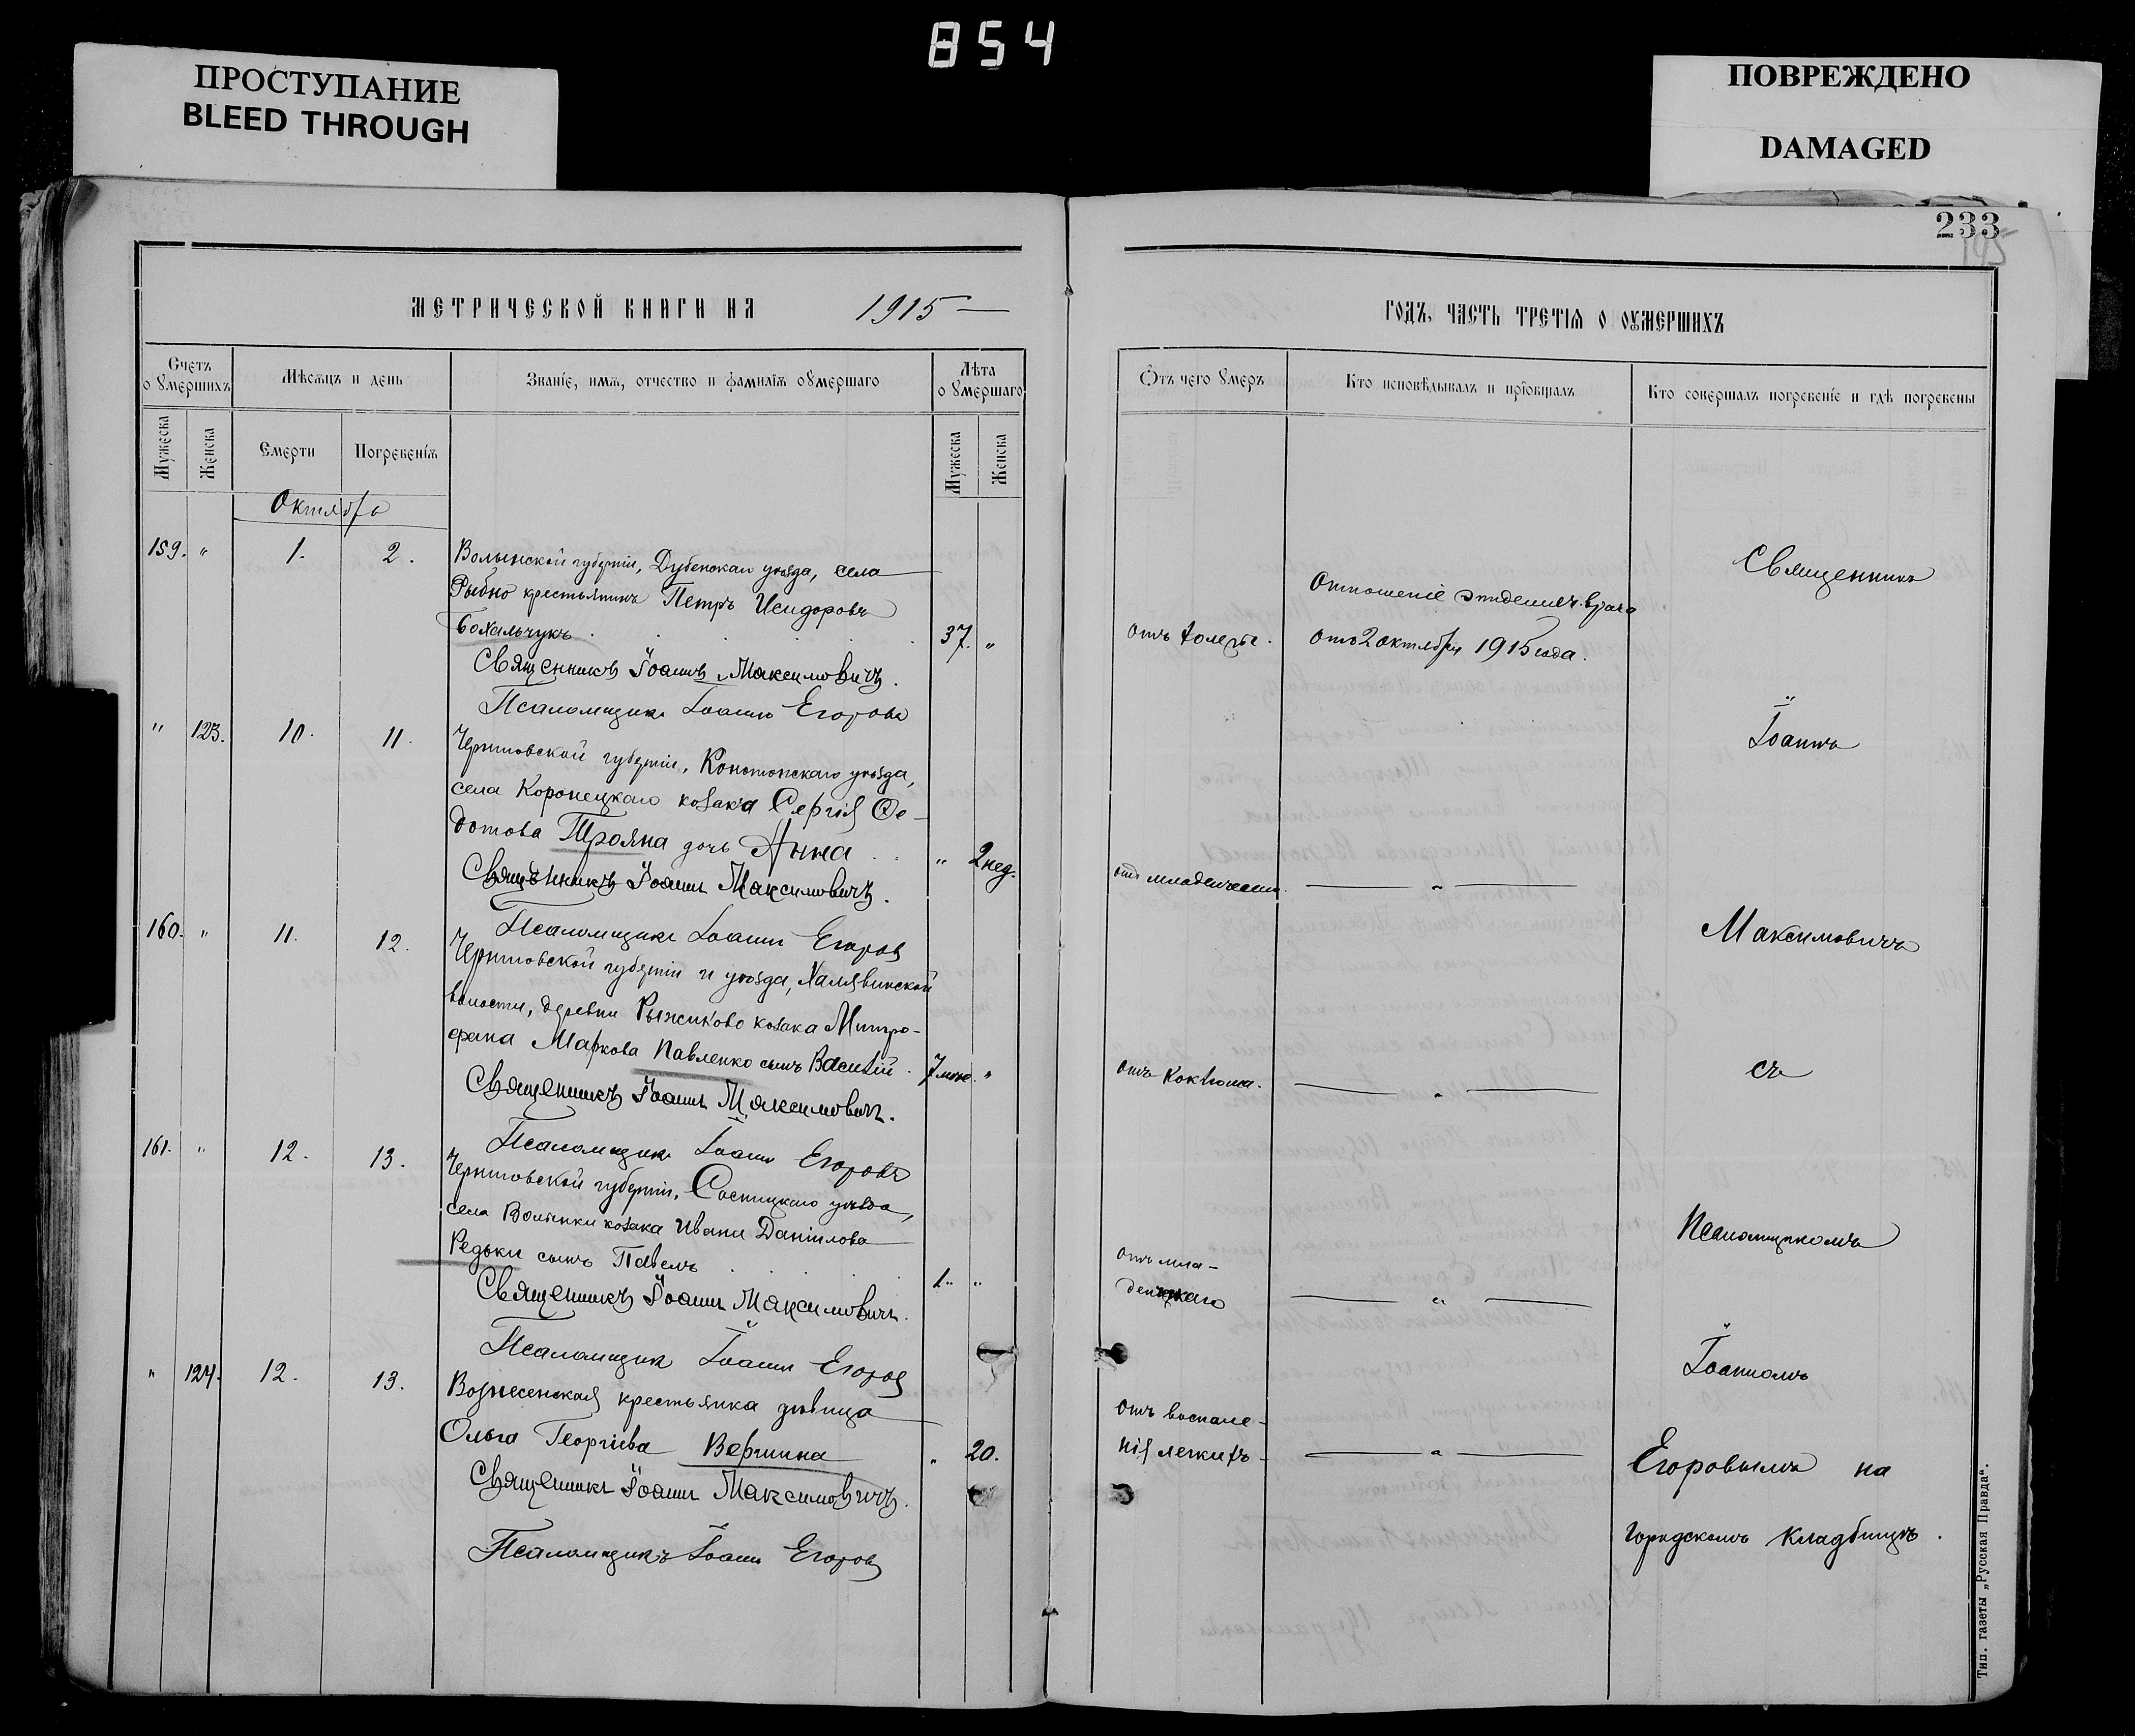 854
ПРОСТУПАНИЕ
BLEED THROUGH
ПОВРЕЖДЕНО
DAMAGED
233
195
МЕТРИЧЕСКОЙ КНИГИ НА 1915
Счетъ о умершихъ
Мѣсяцъ и день
Званіе, имя, отчество и фамилія оумершаго
Лѣта оумершаго
Мужеска
Женска
Смерти
Погребенія
Мужеска
Женска
Октябрь
159. " 1. 2. Волынской губерніи, Дубенскаго уѣзда, села
Рыбно крестьянинъ Петръ Исидоровъ
Бохальчукъ . . . . . 37. "
Священникъ Іоаннъ Максимовичъ.
Псаломщикъ Іоаннъ Егоровъ
" 123. 10. 11. Черниговской губерніи, Конотопскаго уѣзда,
села Коропецкаго козака Сергія Ѳе-
дотова Трояна дочь Анна . . " 2 нед.
Священникъ Іоаннъ Максимовичъ.
Псаломщикъ Іоаннъ Егоровъ
160. " 11. 12. Черниговской губерніи и уѣзда, Халявинской
волости, деревни Рыжиково козака Митро-
фана Маркова Павленко сынъ Василій . 7 мѣс. "
Священникъ Іоаннъ Максимовичъ.
Псаломщикъ Іоаннъ Егоровъ
161. " 12. 13. Черниговской губерніи, Сосницкаго уѣзда,
села Волынки козака Ивана Даніилова
Редьки сынъ Павелъ . . . . 1. "
Священникъ Іоаннъ Максимовичъ.
Псаломщикъ Іоаннъ Егоровъ
" 124. 12. 13. Вознесенская крестьянка дѣвица
Ольга Георгіева Вершина " 20.
Священникъ Іоаннъ Максимовичъ.
Псаломщикъ Іоаннъ Егоровъ
ГОДЪ, ЧАСТЬ ТРЕТІЯ О ОУМЕРШИХЪ
Отъ чего умеръ
Кто исповѣдывалъ и пріобщалъ
Кто совершалъ погребеніе и гдѣ погребены
отъ холеры.
Отношеніе эпидемич. врача
отъ 2 октября 1915 года.
отъ младенческ.
" 
отъ коклюша.
"
отъ мла-
денческаго
"
отъ воспале-
нія легкихъ
"
Священникъ
Іоаннъ
Максимовичъ
съ
Псаломщикомъ
Іоанномъ
Егоровымъ на
городскомъ кладбищѣ.
Тип. газеты „Русская Правда“.